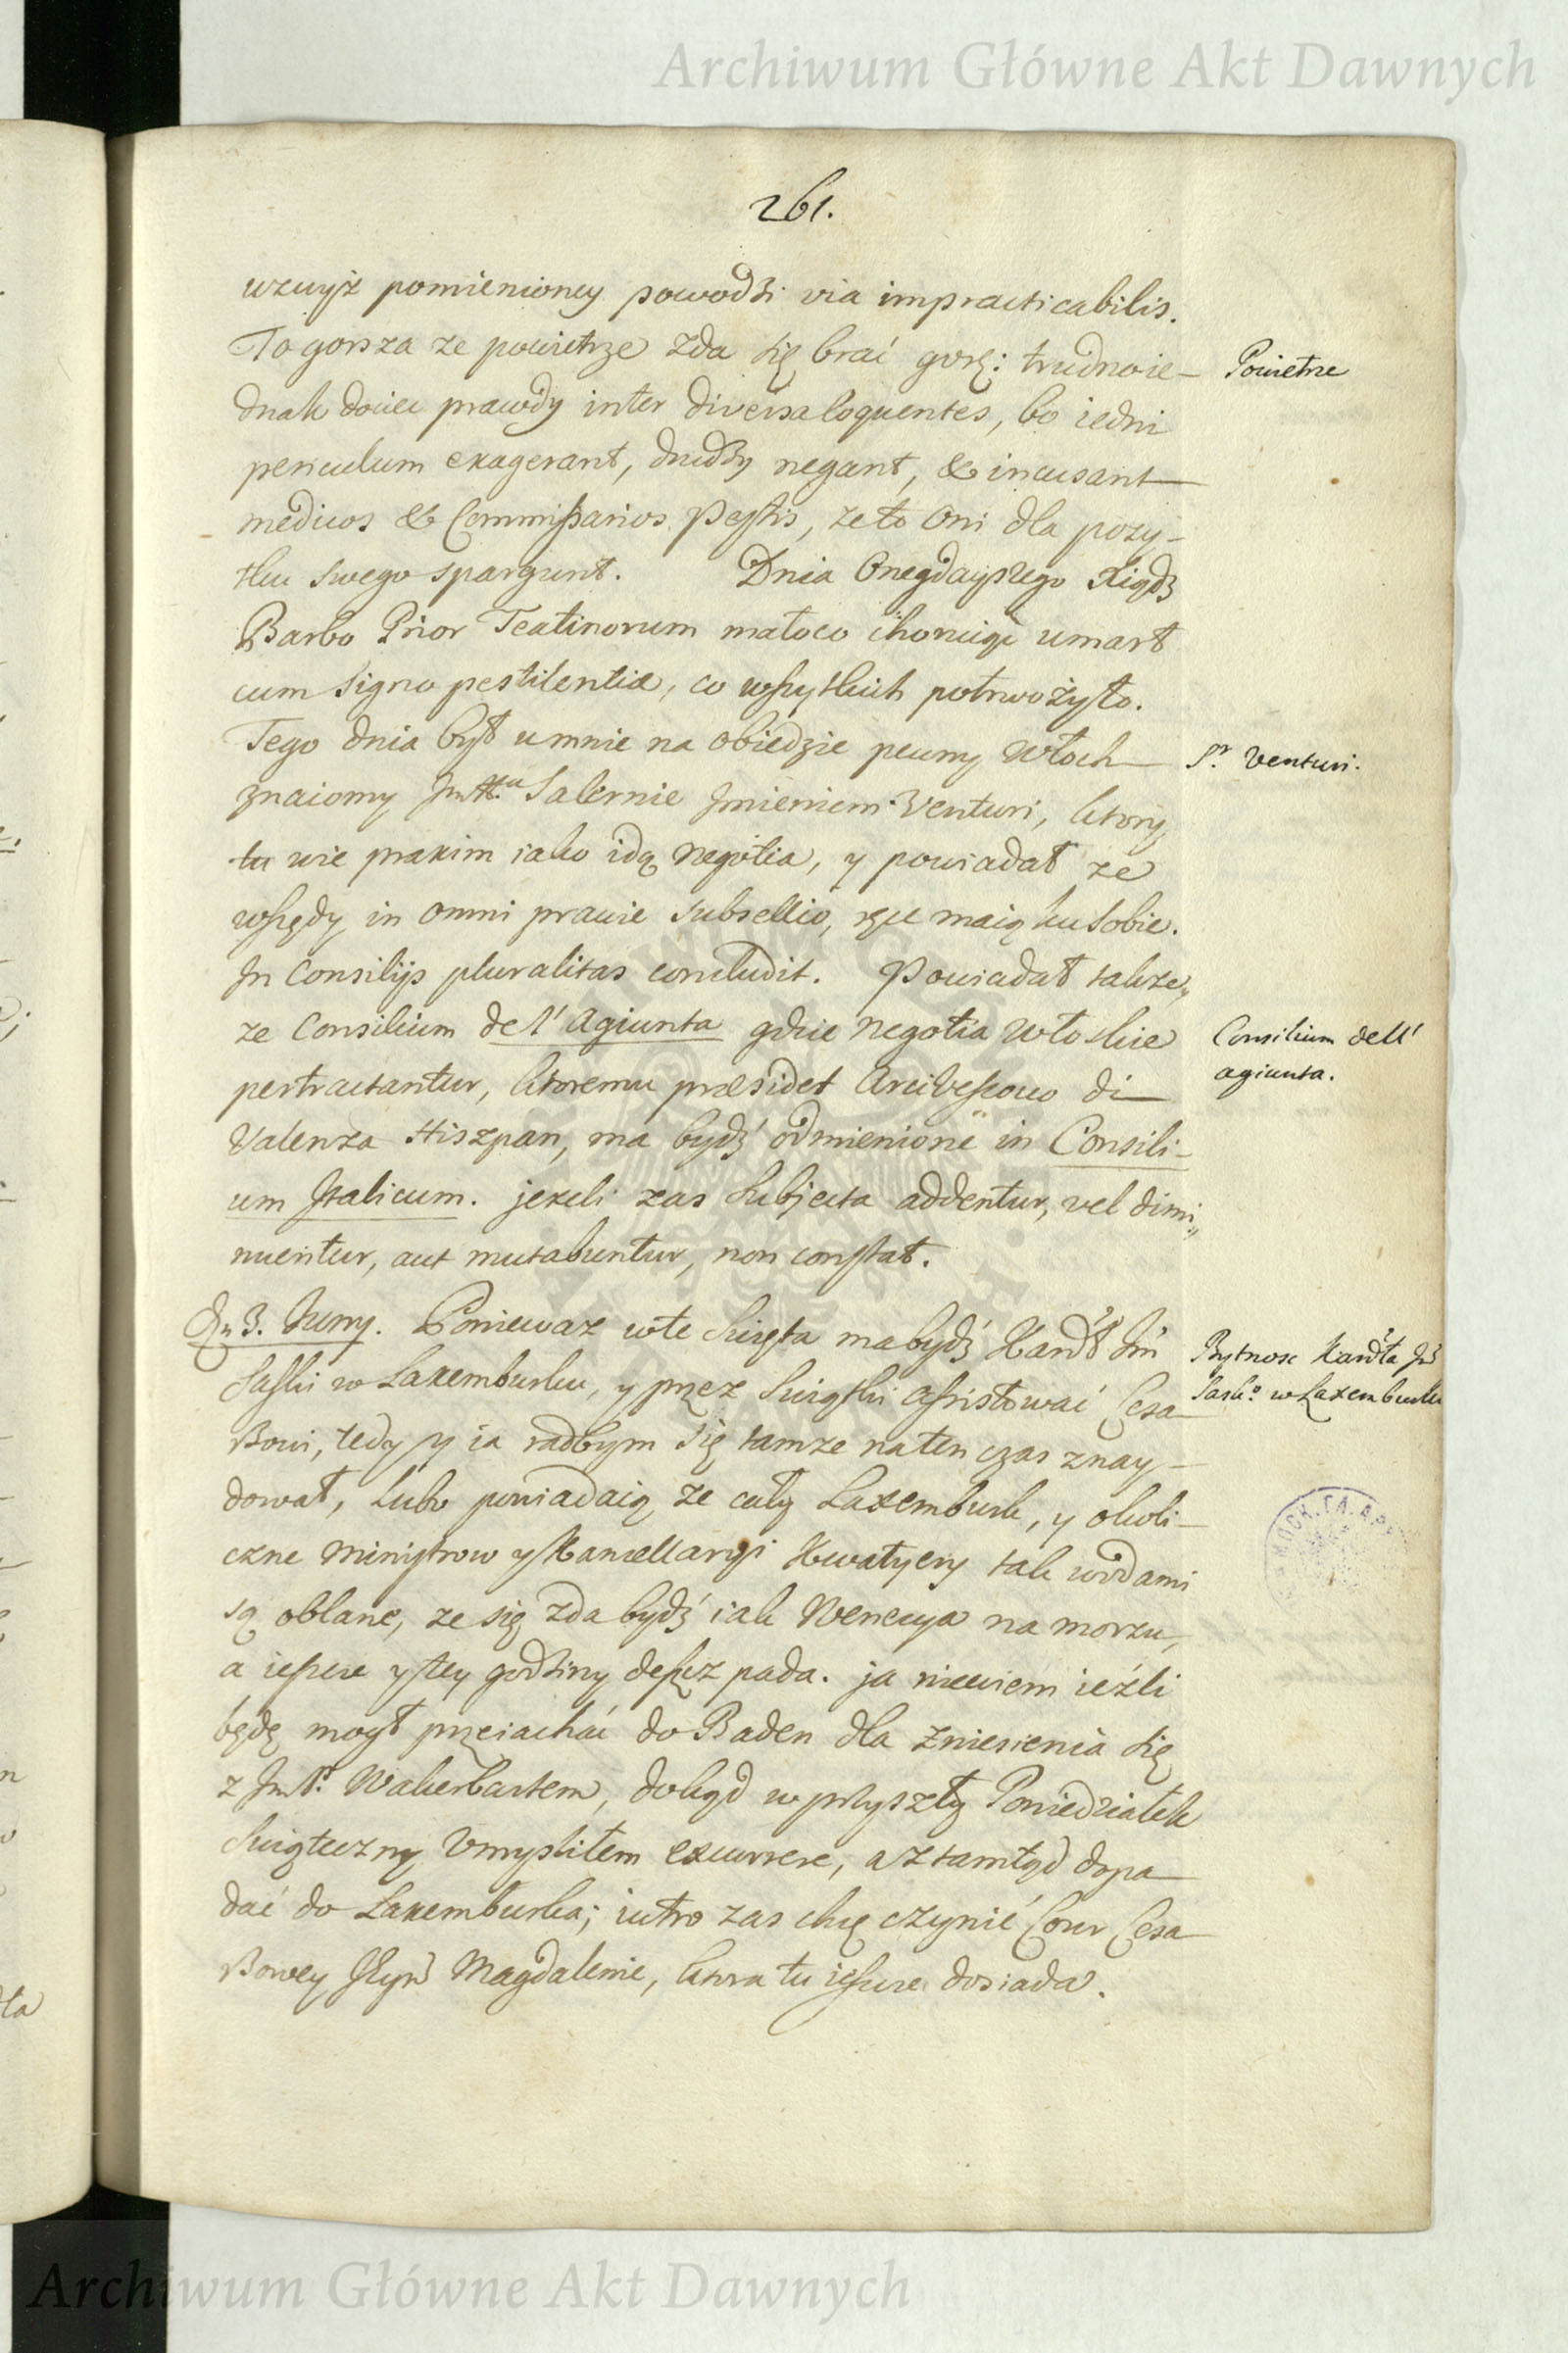 Archiwum Główne Akt Dawnych
261.
wzwyż pomienioney powodzi via impracticabilis.
To gorsza ze powietrze zda się brać gorę: trudno ie-
Powietrze
dnak dociec prawdy inter diversa loquentes, bo iedni
periculum exagerant, drudzy negant, & incusant
medicos & Commissarios Pestis, ze to Oni dla pozy-
tku swego spargunt. Dnia Onegdayszego Xiądz
Barbo Prior Teatinorum mało co choruiąc umarł
cum Signo pestilentiæ, co wszytkich potrwożyło.
Tego dnia był u mnie na obiedzie pewny Włoch
Sr. Venturi.
znaiomy Salernie Jmieniem Venturi, ktory
tu wie praxim iako idą negotia, y powiadał ze
wszędy in omni prawie subsellio, ręce maią ku sobie.
In Consilijs pluralitas concludit. Powiadał takze,
ze Consilium del' Agiunta gdzie negotia Włoskie
Consilium dell'
agiunta.
pertractantur, ktoremu præsidet Arcivescovo di
Valenza Hiszpan, ma bydź odmienione in Consili-
um Italicum. jezeli zas Subjecta addentur, vel dimi-
nuentur, aut mutabuntur, non constat.
Dn 3. Juny. Poniewaz w te Swięta ma bydź Kardł Jm
Bytnosc Kardła Jmć
Sasko w Laxemburku
Saski w Laxemburku, y przez Swiątki assistować Cesa-
rzowi, tedy y ia radbym się tamze na ten czas znay-
dował, lubo powiadaią ze cały Laxemburk, y okoli-
czne Ministrow y Kancellaryi Kwatyery tak wodami
są oblane, ze się zda bydź iak Wenecya na morzu,
a ieszcze y tey godziny deszcz pada. ja niewiem ieźli
będę mogł przeiachać do Baden dla zniesienia się
z Wakerbartem, dokąd w przyszły Poniedziałek
Swiąteczny Umyslilem excurrere, a ztamtąd dopa-
dać do Laxemburka; iutro zas chcę czynić Cour Cesa-
rzowey Magdalenie, ktora tu ieszcze dosiada.
Archiwum Główne Akt Dawnych